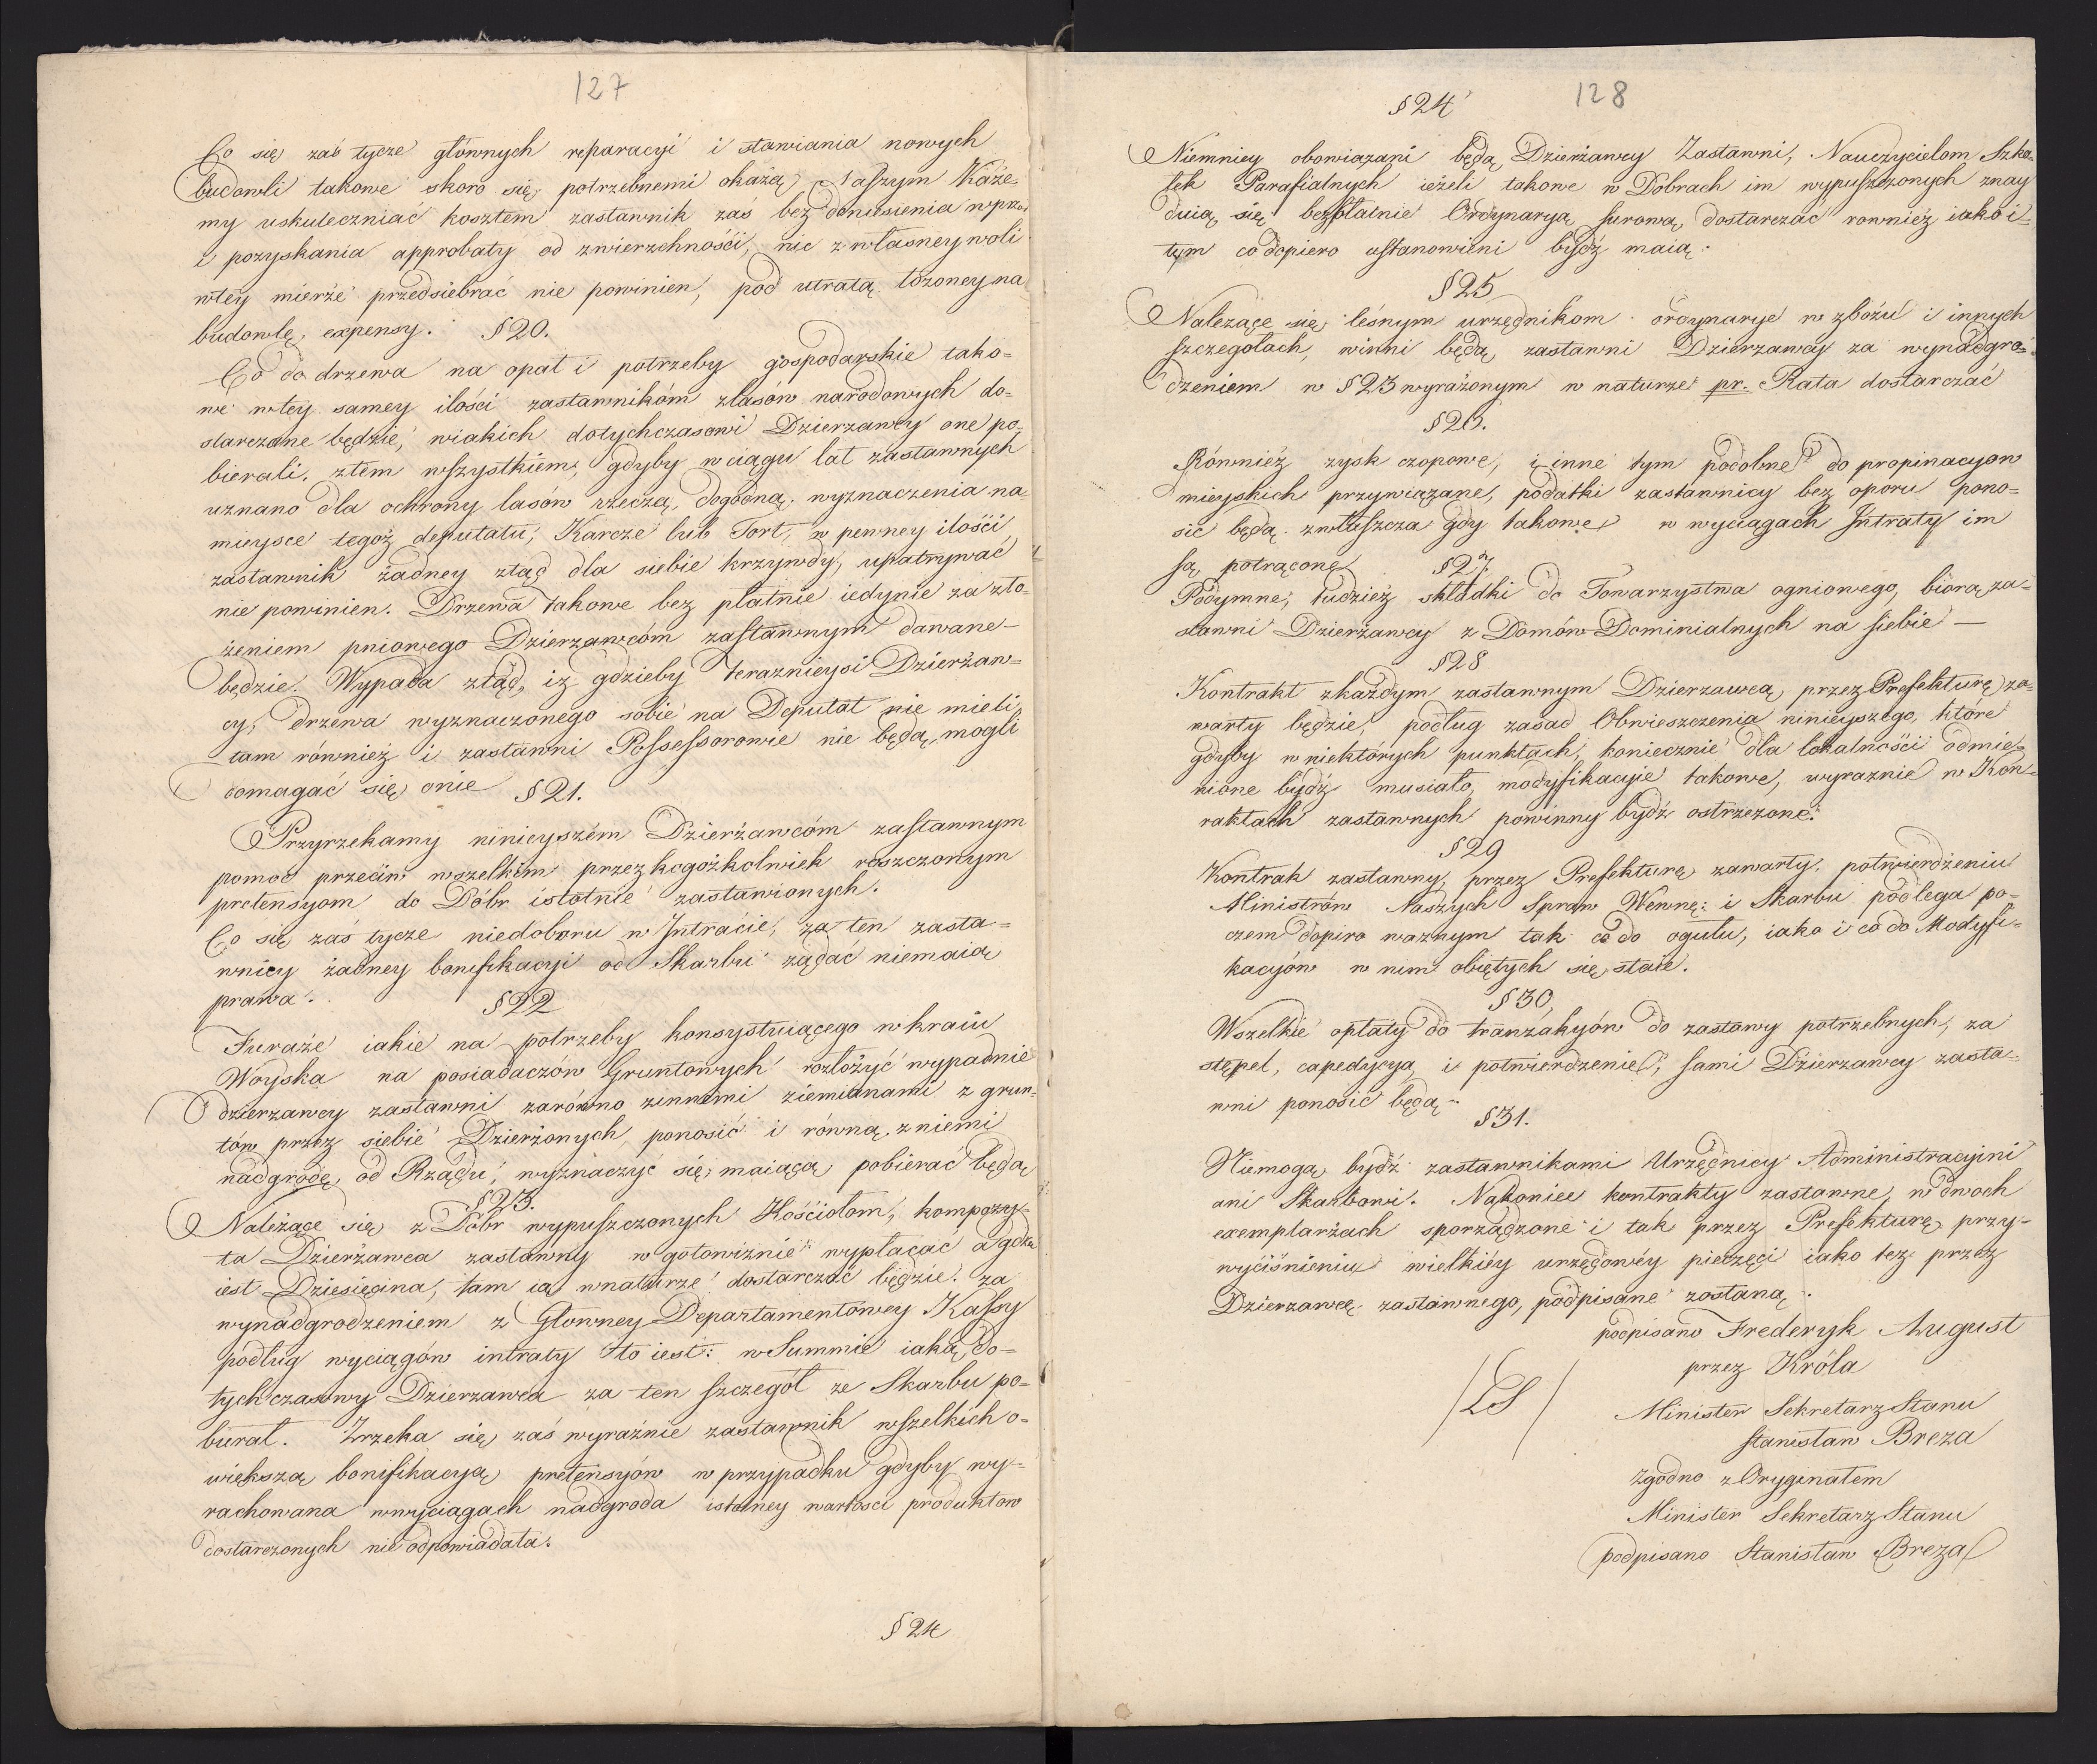 127
Co się zaś tycze głównych reparacyi i stawiania nowych
budowli takowe skoro się potrzebnemi okażą Naszym Każe-
my uskuteczniać kosztem zastawnik zaś bez doniesienia wprzo
i pozyskania approbaty od zwierzchności, nic z własney woli
wtey mierze przedsiebrać nie powinien, pod utratą łożoney na
budowlę expensy. §20.
Co do drzewa na opał i potrzeby gospodarskie tako-
we wtey samey ilości zastawnikóm zlasów narodowych do-
starczane będzie, wiakich dotychczasowi Dzierzawcy one po-
bierali, ztem wszystkiem, gdyby wciągu lat zastawnych
uznano dla ochrony lasów rzeczą dogodną wyznaczenia na
mieysce tegoż deputatu, Karcze lub Torf, w pewney ilości
zastawnik żadney ztąd dla siebie krzywdy, upatrywać
nie powinien. Drzewa takowe bez płatnie iedynie za zło-
żeniem pniowego Dzierzawcóm zastawnym dawane
będzie. Wypada ztąd, iż gdzieby terazniéysi Dzierżaw-
cy, drzewa wyznaczonego sobie na Deputat nie mieli,
tam również i zastawni Possessorowie nie będą mogli
domagać się onie §21.
Przyrzekamy ninieyszém Dzierżawcóm zastawnym
pomoc przeciw wszelkim przez kogożkolwiek roszczonym
pretensyom do Dóbr istotnie zastawionych.
Co się zaś tycze niedoboru w Intracie, za ten zasta-
wnicy żadney bonifikacyi od Skarbu żądać niemaią
prawa. §22
Furaże iakie na potrzeby konsystuiącego w kraiu
Woyska na posiadaczów Gruntowych rozłożyć wypadnie
dzierzawcy zastawni zarówno zinnemi ziemianami z grun-
tów przez siebie Dzierżonych ponosić i równą z niemi
nadgrodę od Rządu, wyznaczyć się maiącą pobierać będą
§23.
Należące się z Dóbr wypuszczonych Kościołom, kompozy-
ta Dzierżawca zastawny w gotowiznie wypłacać a gdzie
iest Dziesięcina, tam ią wnaturze dostarczać będzie. za
wynadgrodzeniem z Główney Departamentowey Kassy
podług wyciągów intraty to iest: w Summie iaką do-
tychczasowy Dzierzawca za ten szczegół ze Skarbu po-
bierał. Zrzeka się zaś wyraźnie zastawnik wszelkich o
większą bonifikacyą pretensyów w przypadku gdyby wy-
rachowana wwyciagach nadgroda istotney wartosci produktow
dostarczonych nie odpowiadała.
§24
128
§24
Niemniey obowiązani będą Dzierżawcy Zastawni, Nauczycielom Szko-
łek Parafialnych ieżeli takowe w Dobrach im wypuszczonych znay
duią się bezpłatnie Ordynaryą surową dostarczać rownież iako i
tym co dopiero ustanowieni bydź maią.
§25
Należące się leśnym urzędnikom ordynarye w zbożu i innych
szczegołach, winni będą zastawni Dzierzawcy za wynadgro-
dzeniem w §23 wyrażonym w naturze pr. Rata dostarczać
§26.
Również zysk czopowe, i inne tym podobne do propinacyow
mieyskich przywiązane, podatki zastawnicy bez oporu pono-
sić będą. zwłaszcza gdy takowe w wyciagach Intraty im
są potrącone §27.
Podymne, tudzież składki do Towarzystwa ogniowego, biorą za-
stawni Dzierżawcy z Domów Dominialnych na siebie —
§28
Kontrakt zkażdym zastawnym Dzierzawcą przez Prefekturę za-
warty będzie, podług zasad Obwieszczenia ninieyszego, które
gdyby w niektórych punktach, koniecznie dla lokalności odmie-
nione bydź musiało, modyfikacyie takowe, wyraznie w Kon-
raktach zastawnych powinny bydź ostrzeżone.
§29
Kontrak zastawny, przez Prefekturę zawarty, potwierdzeniu
Ministrów Naszych Spraw Wewnę: i Skarbu podlega po-
czem dopiro ważnym tak co do ogułu, iako i co do Modyfi-
kacyów w nim obiętych się staie.
§30,
Wszelkie opłaty do tranzakyów do zastawy potrzebnych, za
stępel, expedycyą i potwierdzenie, sami Dzierzawcy zasta-
wni ponosić będą.
§31.
Niemogą bydź zastawnikami Urzędnicy Administracyini
ani Skarbowi. Nakoniec kontrakty zastawne, w dwoch
exemplarżach sporządzone i tak przez Prefekturę przy-
wyciśnieniu wielkiéy urzędowéy pieczęci iako tez przez
Dzierzawcę zastawnego, podpisane zostaną.
podpisano Frederyk August
przez Króla
/LS/
Minister Sekretarz Stanu
Stanisław Breza
zgodno z Oryginałem
Minister Sekretarz Stanu
podpisano Stanisław Breza